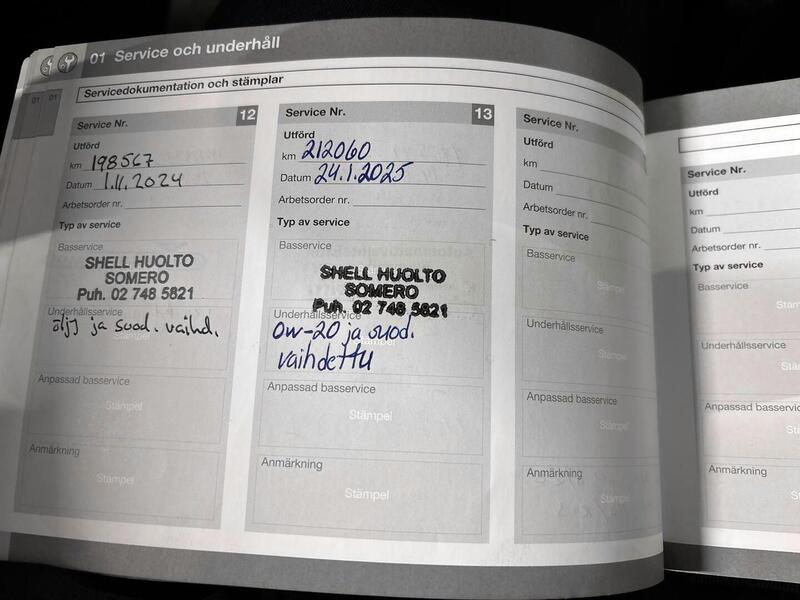 01 Service och underhåll
01 01
Servicedokumentation och stämplar
Service Nr. 12
Utförd
km 198567
Datum 1.11.2024
Arbetsorder nr.
Typ av service
Basservice
SHELL HUOLTO
SOMERO
Puh. 02 748 5821
Underhållsservice
öljy ja suod. vaihd.
Anpassad basservice
Stämpel
Anmärkning
Stämpel
Service Nr. 13
Utförd
km 212060
Datum 24.1.2025
Arbetsorder nr.
Typ av service
Basservice
SHELL HUOLTO
SOMERO
Puh. 02 748 5821
Underhållsservice
0w-20 ja suod.
vaihdettu
Anpassad basservice
Stämpel
Anmärkning
Stämpel
Service Nr.
Utförd
km
Datum
Arbetsorder nr.
Typ av service
Basservice
Underhållsservice
Anpassad basservice
Anmärkning
Service Nr.
Utförd
km
Datum
Arbetsorder nr.
Typ av service
Basservice
Underhållsservice
Anpassad basservice
Anmärkning